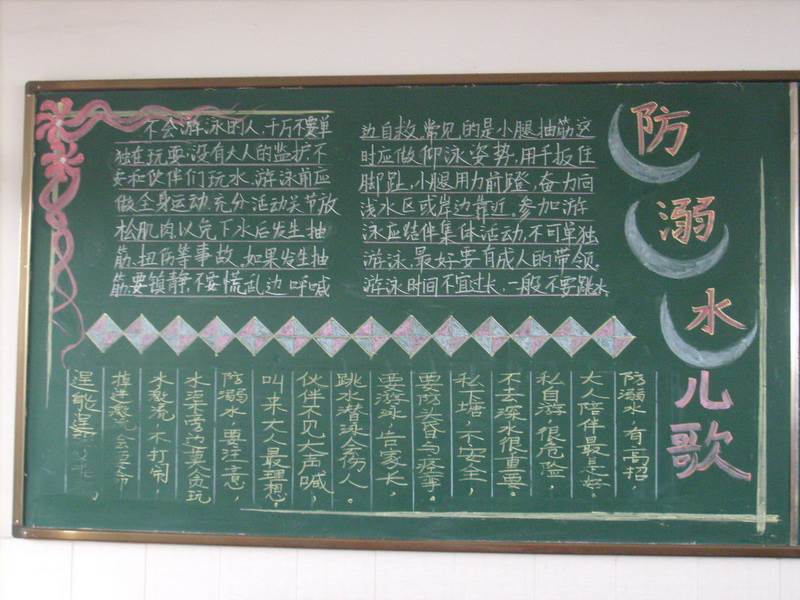 防溺水儿歌
不会游泳的人,千万不要单
独在玩耍,没有大人的监护,不
要和伙伴们玩水,游泳前应
做全身运动,充分活动关节放
松肌肉以免下水后发生抽
筋、扭伤等事故。如果发生抽
筋,要镇静,不要慌乱边呼喊
边自救,常见的是小腿抽筋这
时应做仰泳姿势,用手扳住
脚趾,小腿用力前蹬,奋力向
浅水区或岸边靠近。参加游
泳应结伴集体活动,不可单独
游泳,最好要自成人的带领。
游泳时间不宜过长,一般不要跳水
防溺水,有高招,
大人陪伴最是好。
私自游,很危险,
不去深水很重要。
私下塘,不安全,
要防头昏与痉挛。
要游泳,告家长,
跳水潜泳会伤人。
伙伴不见大声喊,
叫来大人最理想。
防溺水,要注意,
水渠旁边莫贪玩
水急流,不打闹,
掉进
逞能